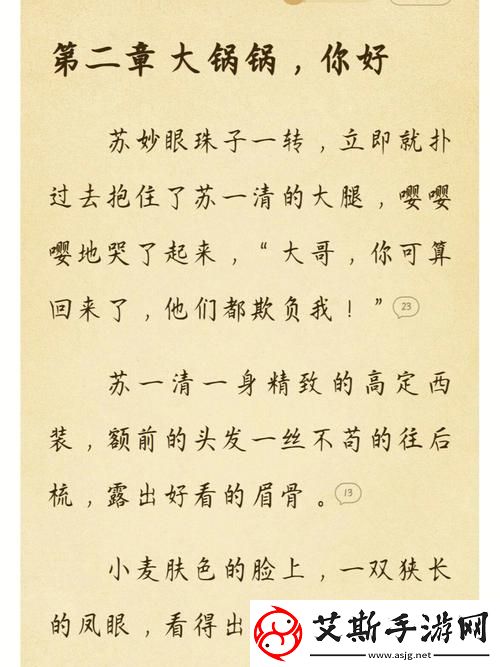 第二章 大锅锅，你好
苏妙眼珠子一转，立即就扑
过去抱住了苏一清的大腿，嘤嘤
嘤地哭了起来，“大哥，你可算
回来了，他们都欺负我！”23
苏一清一身精致的高定西
装，额前的头发一丝不苟的往后
梳，露出好看的眉骨。13
小麦肤色的脸上，一双狭长
的凤眼，看得出
艾斯手游网
www.asjg.net